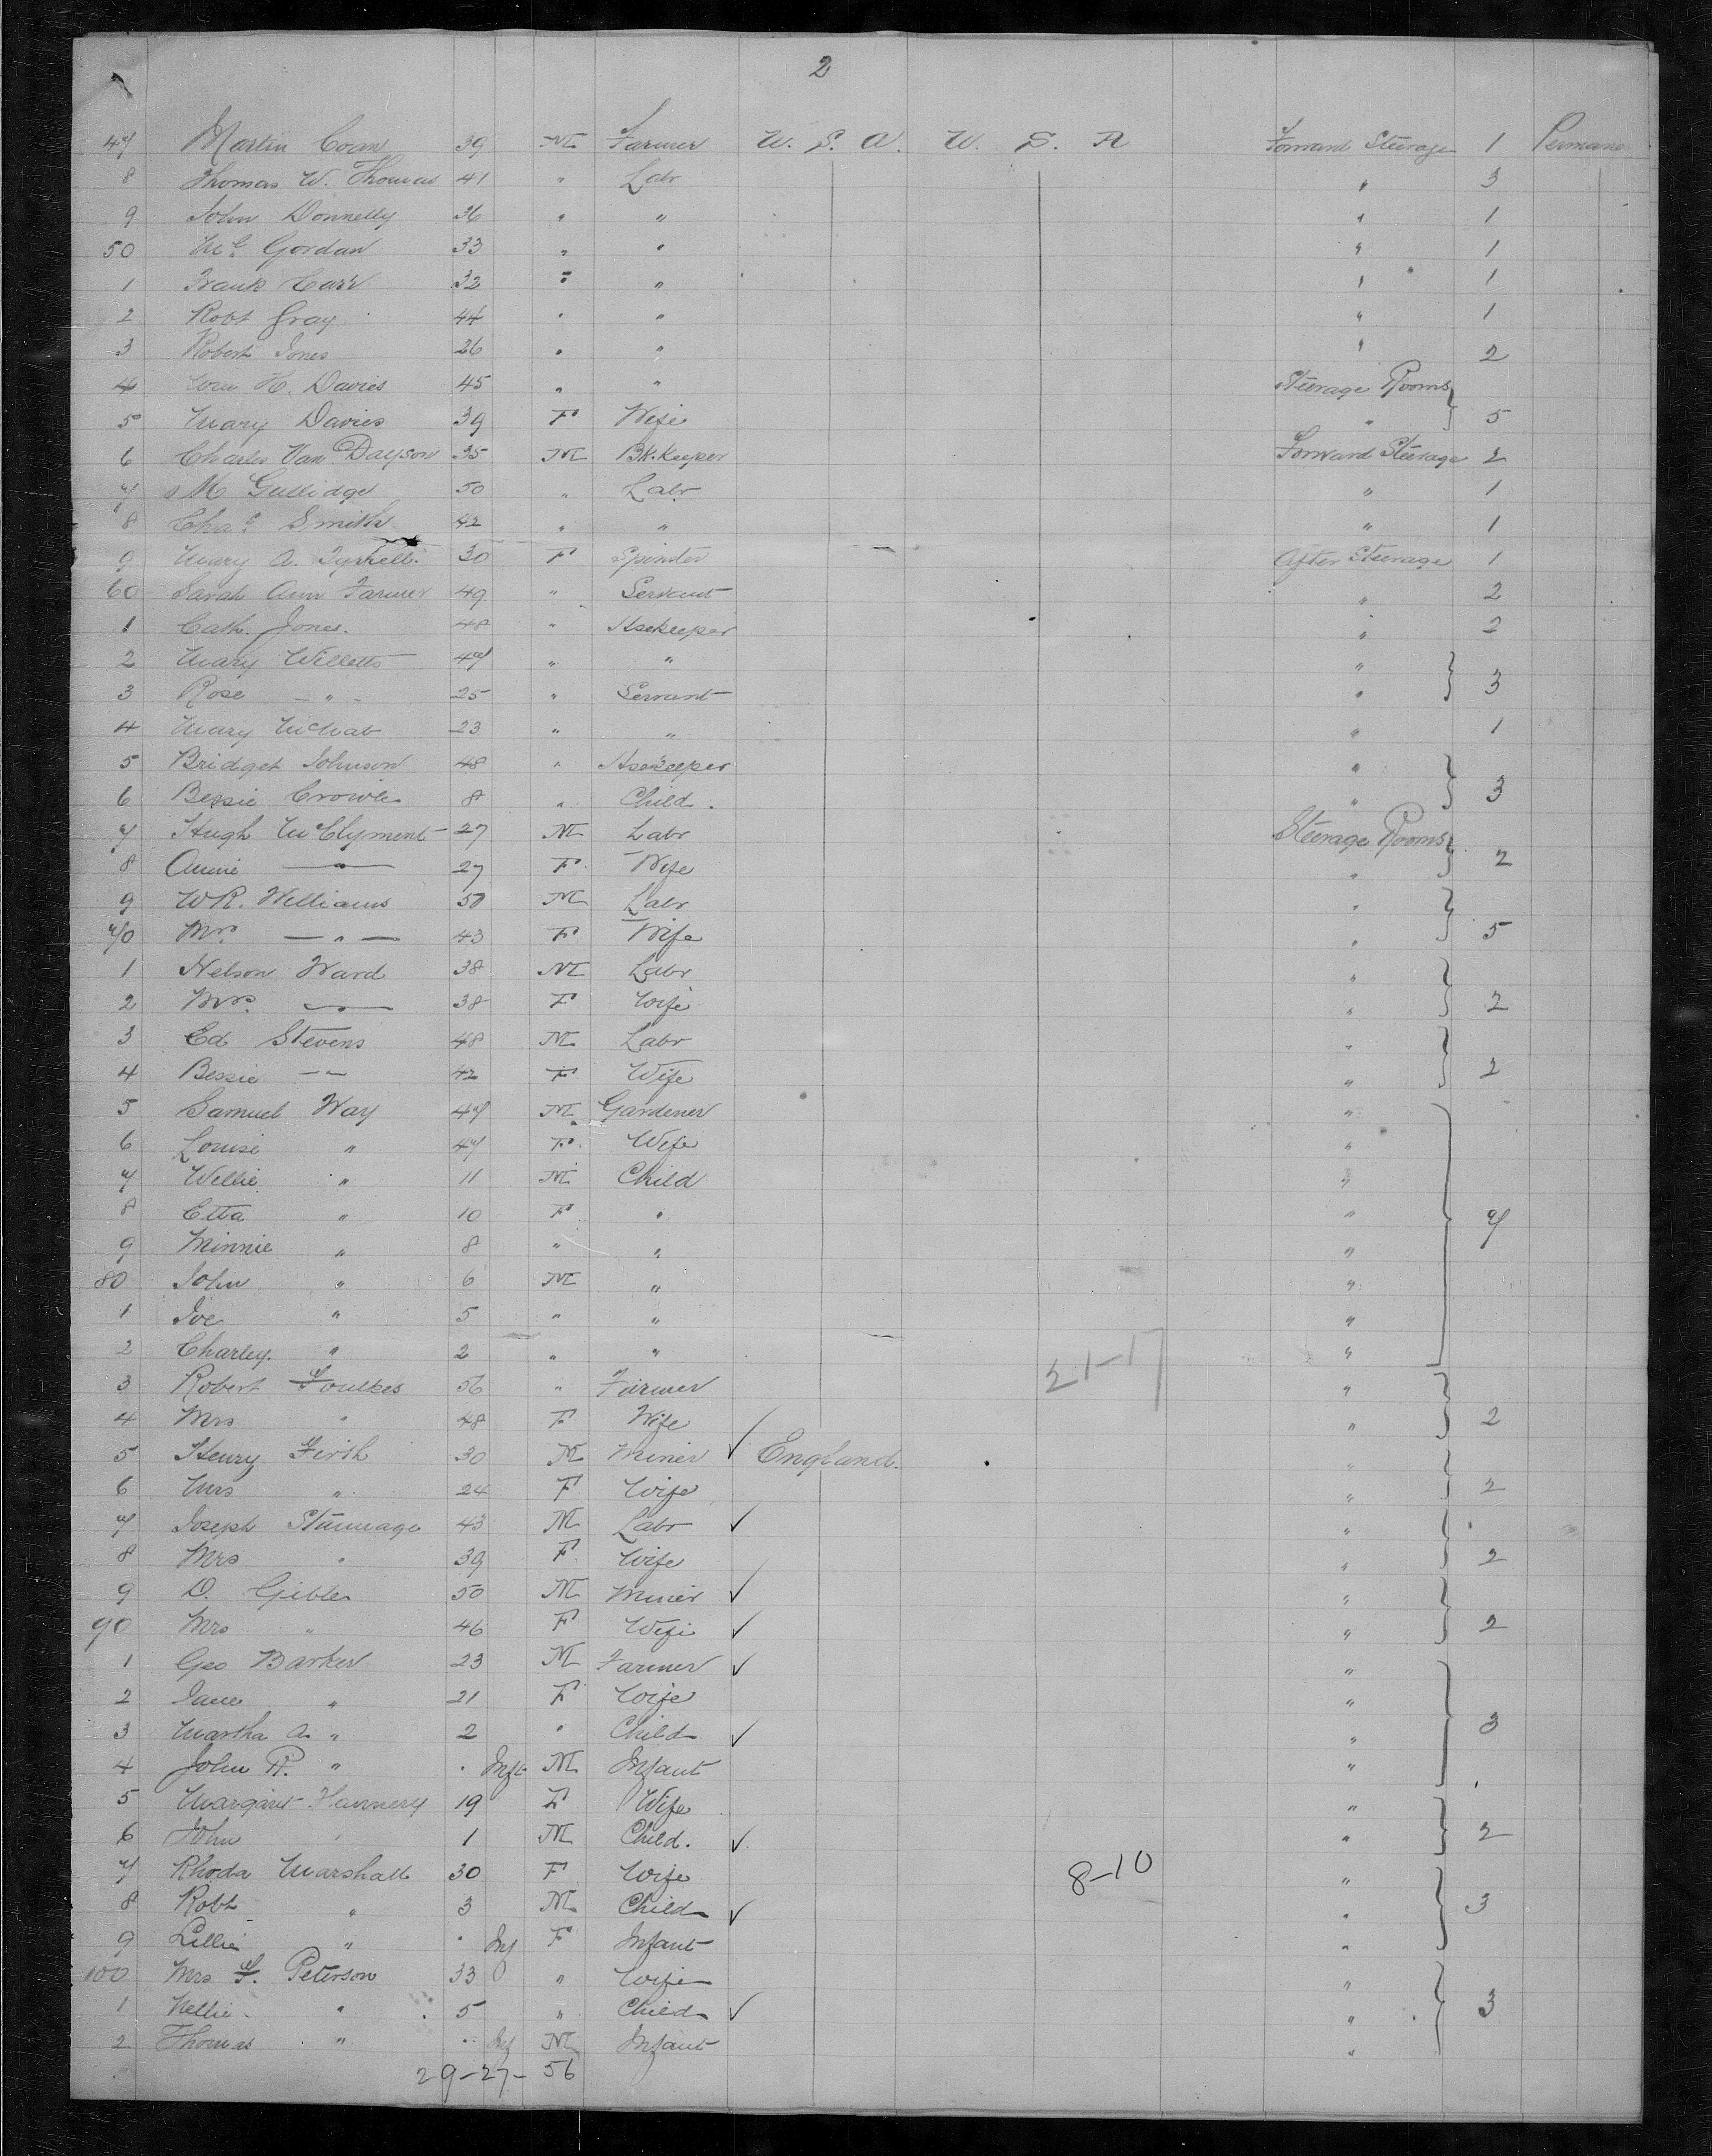 2
47 Martin Coan 39 M Farmer U. S. A. U. S. A Forward Steerage 1 Permane
8 Thomas W. Thomas 41 " Labr " 3
9 John Donnelly 36 " " " 1
50 Mc Gordan 33 " " " 1
1 Frank Carr 32 " " " 1
2 Robt Gray 44 " " " 1
3 Robert Jones 26 " " " 2
4 Wm H. Davies 45 " " Steerage Rooms }
5 Mary Davies 39 F Wife " 5
6 Charles Van Dayson 35 M Bk. Keeper Forward Steerage 2
7 M Gullidge 50 " Labr " 1
8 Chas Smith 42 " " " 1
9 Mary A. Tyrrell. 30 F Spinster After Steerage 1
60 Sarah Ann Farmer 49 " Servant " 2
1 Cath. Jones. 48 " Hsekeeper " 2
2 Mary Willetts 47 " " " }
3 Rose — " — 25 " Servant " 3
4 Mary McNab 23 " " " 1
5 Bridget Johnson 48 " Hsekeeper " }
6 Bessie 8 " Child. " 3
7 Hugh McClyment 27 M Labr Steerage Rooms }
8 Annie — " — 27 F Wife " 2
9 W R. Williams 50 M Labr " }
70 Mrs — " — 43 F Wife " 5
1 Nelson Ward 38 M Labr " }
2 Mrs. — " — 38 F Wife " 2
3 Ed Stevens 48 M Labr " }
4 Bessie — " — 42 F Wife " 2
5 Samuel Way 47 M Gardener " }
6 Louise " 47 F Wife "
7 Willie " 11 M Child "
8 Etta " 10 F " " 7
9 Minnie " 8 " " "
80 John " 6 M " "
1 Joe " 5 " " "
2 Charley. " 2 " " "
21-17
3 Robert Foulkes 56 " Farmer " }
4 Mrs " 48 F Wife " 2
5 Henry Firth 30 M Miner ✓ England. " }
6 Mrs " 24 F Wife " 2
7 Joseph 43 M Labr ✓ " }
8 Mrs " 39 F Wife " 2
9 D. 50 M Miner ✓ " }
90 Mrs " 46 F Wife ✓ " 2
1 Geo Barker 23 M Farmer ✓ " }
2 Jane " 21 F Wife "
3 Martha A. " 2 " Child ✓ " 3
4 John R. " Inft M Infant "
5 Margaret 19 F Wife " }
6 John " 1 M Child. ✓ " 2
7 Rhoda Marshall 30 F Wife 8-10 " }
8 Robt " 3 M Child ✓ " 3
9 Lillie " Inf F Infant "
100 Mrs F. Peterson 33 " Wife " }
1 Nellie " 5 " Child ✓ " 3
2 Thomas " Inf M Infant "
29-27- 56